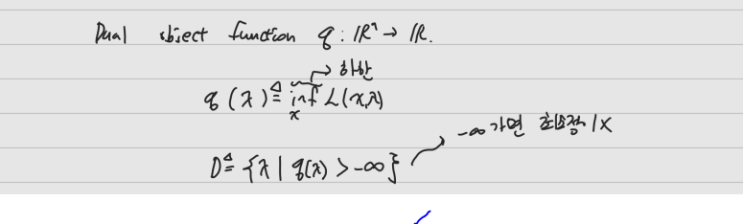 Dual object function q : ℝⁿ → ℝ.
→ 하한
q(λ) ≜ inf L(x,λ)
x
D ≜ {λ | q(λ) > -∞}
→ -∞ 가면